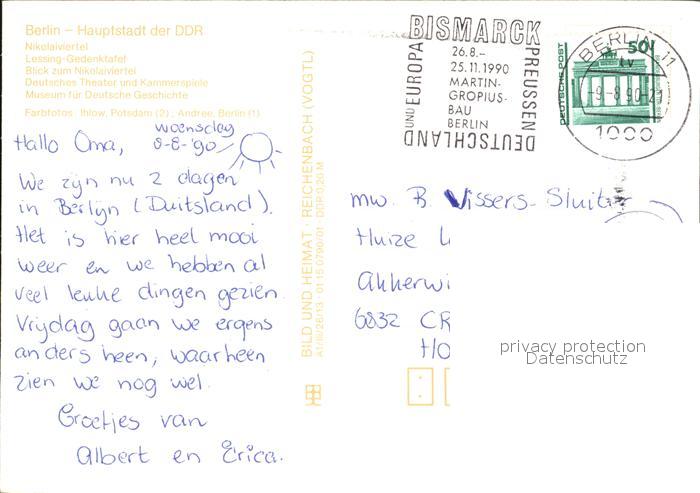 Berlin – Hauptstadt der DDR
Nikolaiviertel
Lessing-Gedenktafel
Blick zum Nikolaiviertel
Deutsches Theater und Kammerspiele
Museum für Deutsche Geschichte
Farbfotos: Ihlow, Potsdam (2); Andree, Berlin (1)
woensdag
Hallo Oma, 8-8-'90
We zyn nu 2 dagen
in Berlyn (Duitsland).
Het is hier heel mooi
weer en we hebben al
veel leuke dingen gezien.
Vrydag gaan we ergens
anders heen, waarheen
zien we nog wel.
Groetjes van
Albert en Erica.
BILD UND HEIMAT · REICHENBACH (VOGTL)
DDR 0,20 M
BISMARCK
PREUSSEN
DEUTSCHLAND
UND EUROPA
26.8.–
25.11.1990
MARTIN-
GROPIUS-
BAU
BERLIN
DEUTSCHE POST
50
BERLIN 11
1000
mw. B. Vissers-Sluiter
Huize
Akkerwi
6832 CR
HO
privacy protection
Datenschutz